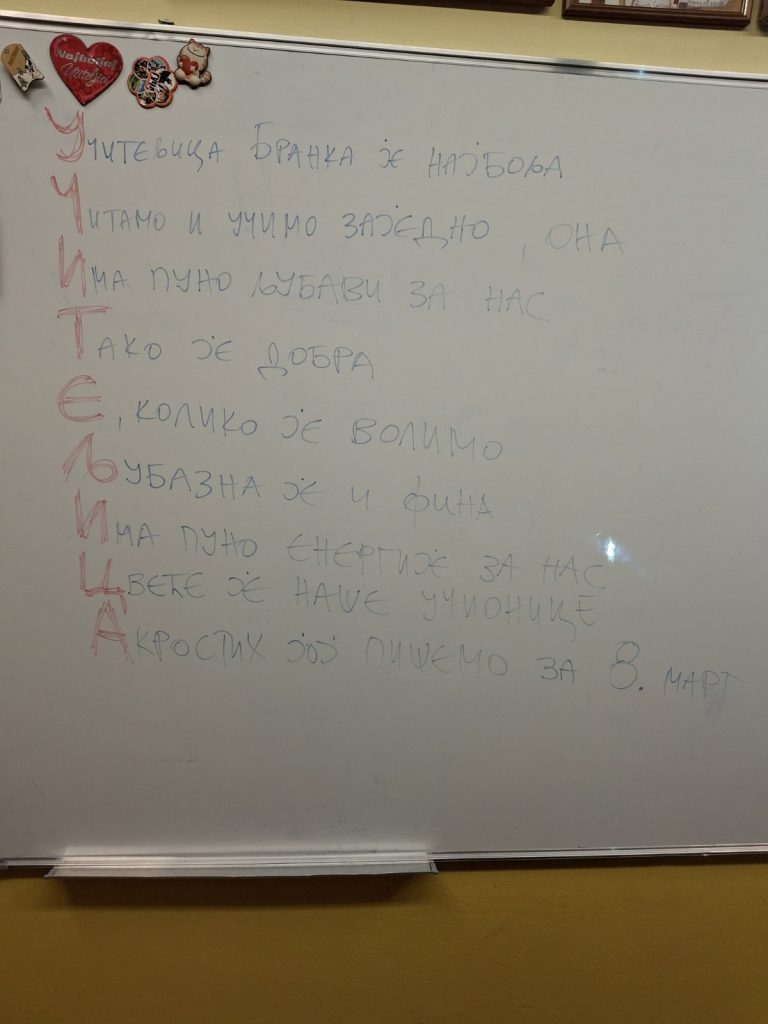 Najboljoj
Učiteljici
УЧИТЕЉИЦА БРАНКА ЈЕ НАЈБОЉА
ЧИТАМО И УЧИМО ЗАЈЕДНО, ОНА
ИМА ПУНО ЉУБАВИ ЗА НАС
ТАКО ЈЕ ДОБРА
Е, КОЛИКО ЈЕ ВОЛИМО
ЉУБАЗНА ЈЕ И ФИНА
ИМА ПУНО ЕНЕРГИЈЕ ЗА НАС
ЦВЕЋЕ ЈЕ НАШЕ УЧИОНИЦЕ
АКРОСТИХ ЈОЈ ПИШЕМО ЗА 8. МАРТ